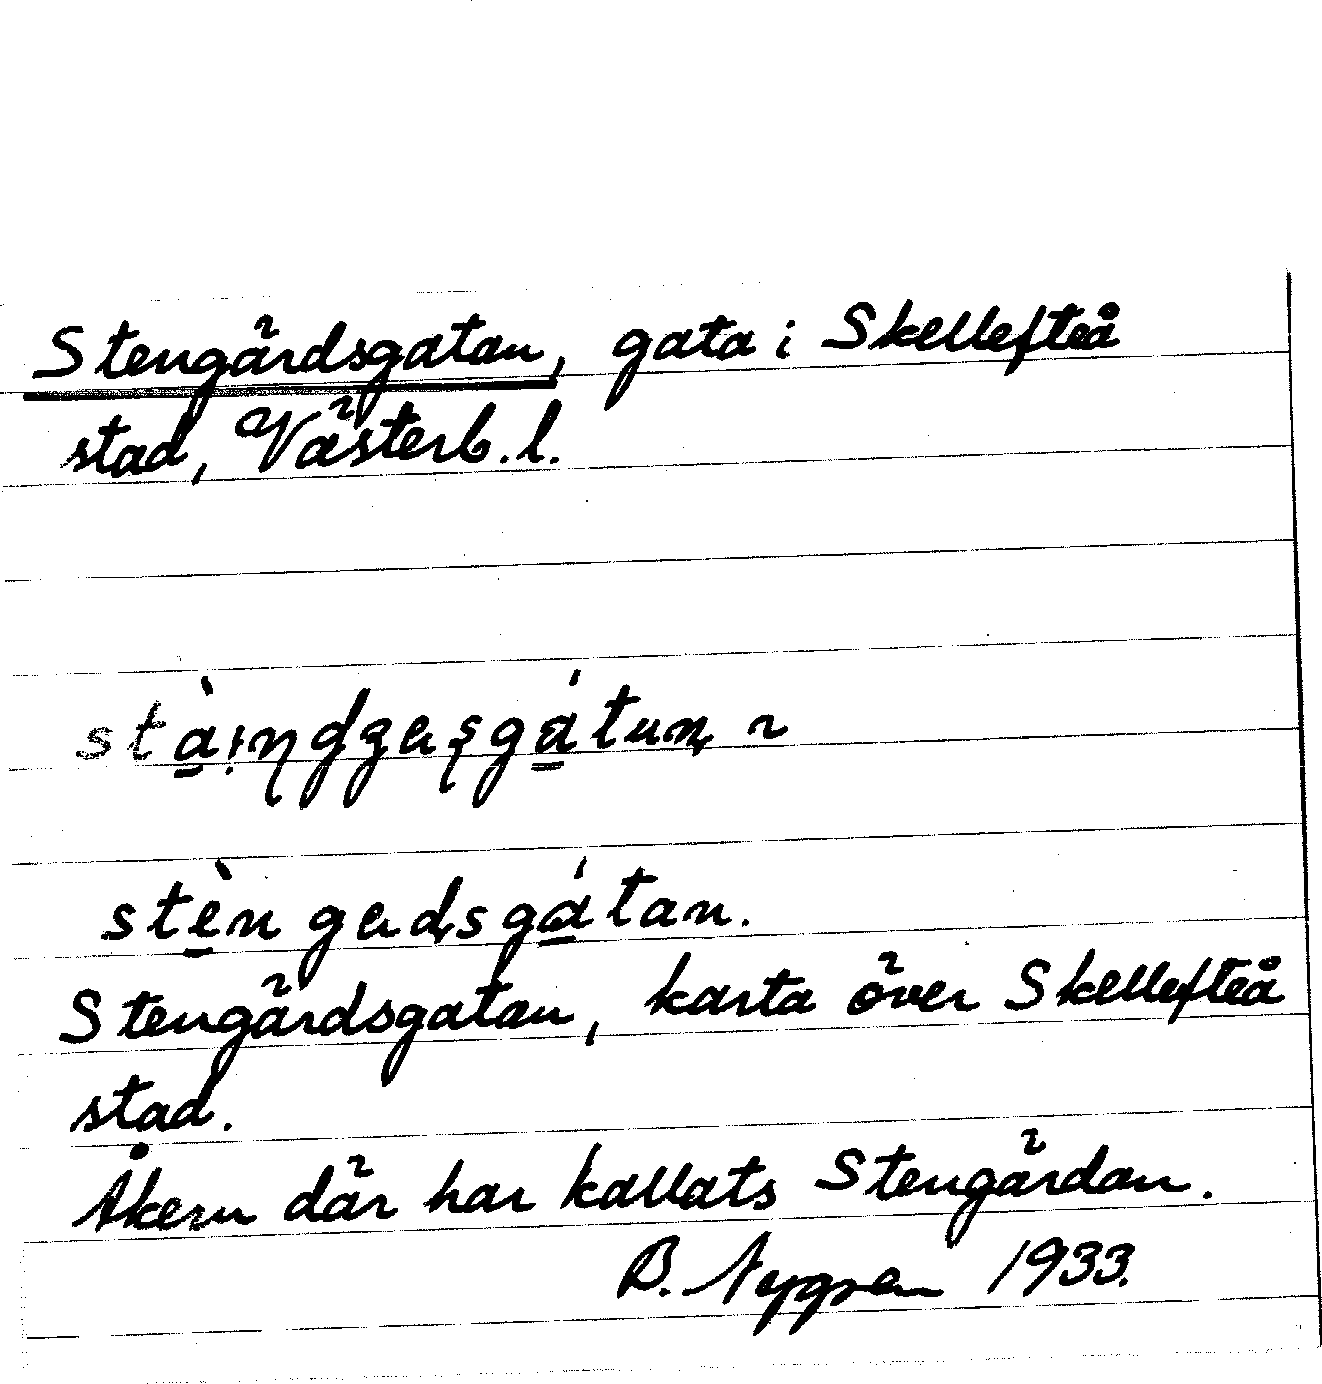 Stengärdsgatan, gata i Skellefteå
stad, Västerb. l.
stèn gadsgátan.
Stengärdsgatan, karta över Skellefteå
stad.
Åkern där har kallats Stengärdan.
B. Nygren 1933.